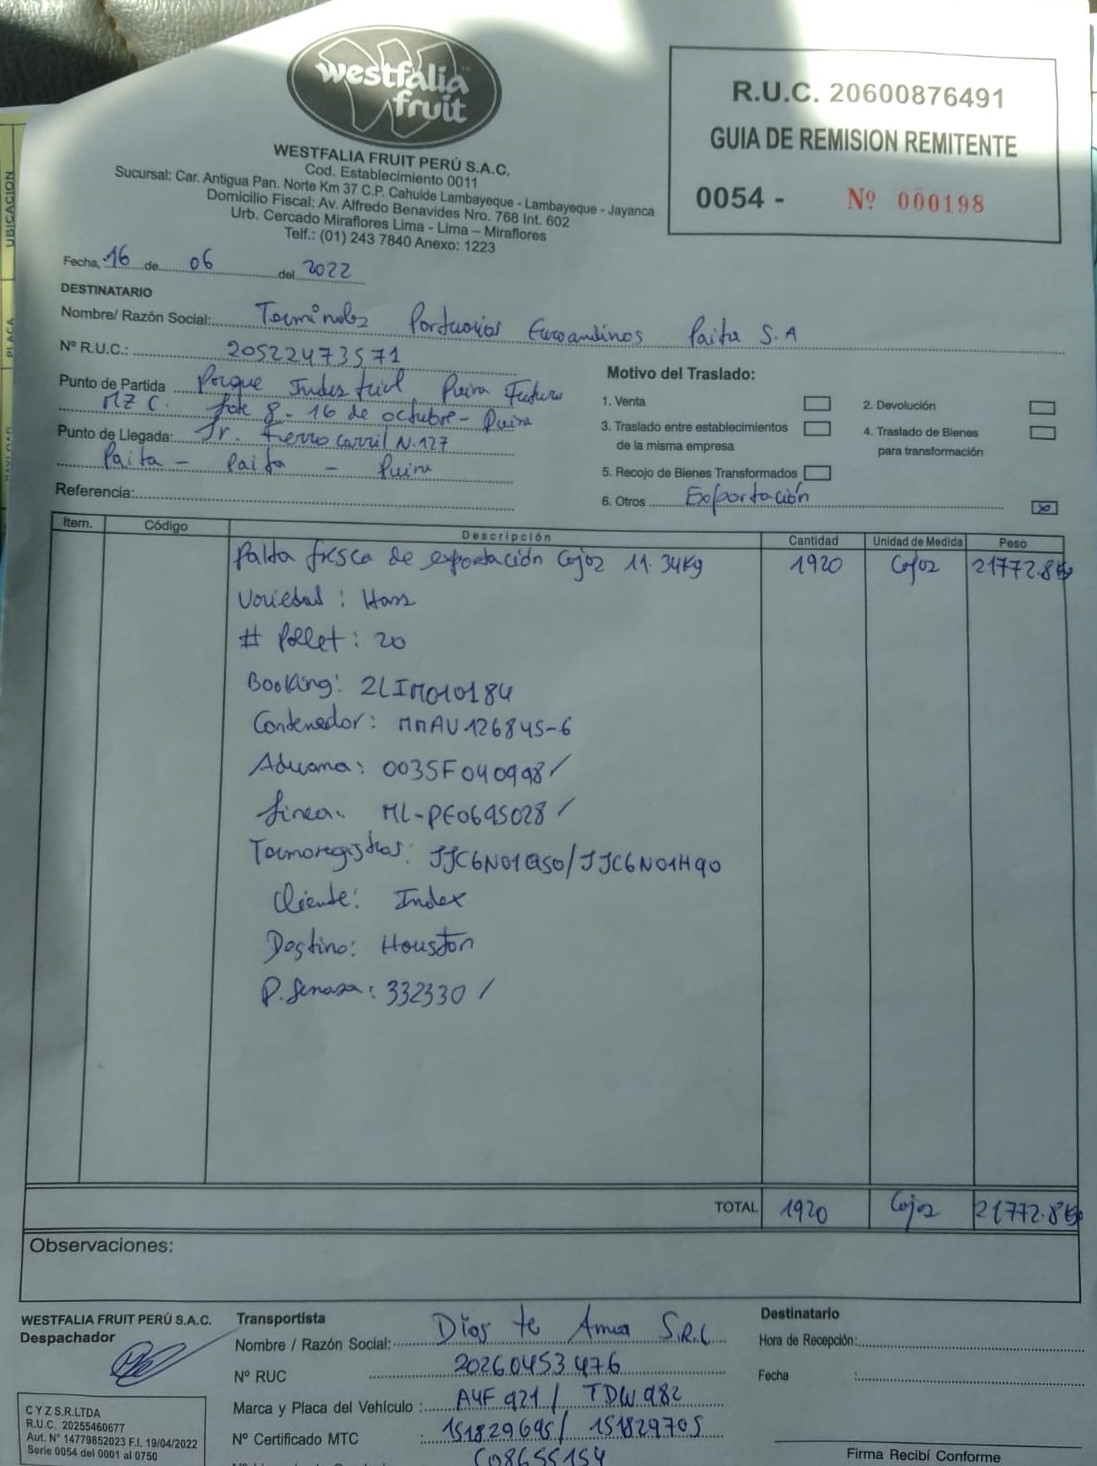 westfalia
fruit
WESTFALIA FRUIT PERÚ S.A.C.
Cod. Establecimiento 0011
Sucursal: Car. Antigua Pan. Norte Km 37 C.P. Cahuide Lambayeque - Lambayeque - Jayanca
Domicilio Fiscal: Av. Alfredo Benavides Nro. 768 Int. 602
Urb. Cercado Miraflores Lima - Lima – Miraflores
Telf.: (01) 243 7840 Anexo: 1223
R.U.C. 20600876491
GUIA DE REMISION REMITENTE
0054 - Nº 000198
Fecha, 16 de 06 del 2022
DESTINATARIO
Nombre/ Razón Social: Terminales Portuarios Euroandinos Paita S.A
Nº R.U.C.: 20522473571
Punto de Partida Parque Industrial Piura Futura
MZ C. lote 8 - 16 de octubre - Piura
Punto de Llegada: Jr. Ferrocarril N.127
Paita - Paita - Piura
Referencia:
Motivo del Traslado:
1. Venta
2. Devolución
3. Traslado entre establecimientos de la misma empresa
4. Traslado de Bienes para transformación
5. Recojo de Bienes Transformados
6. Otros Exportación X
Item. Código Descripción Cantidad Unidad de Medida Peso
Palta fresca de exportación Cajas 11.34Kg 1920 Cajas 21772.8Kg
Variedad : Hass
# Pallet : 20
Booking: 2LIM010184
Contenedor: MMAU126845-6
Aduana: 0035F040998/
Linea: ML-PE0695028/
Termoregistros: JJC6N01QS0/JJC6N01H90
Cliente: Index
Destino: Houston
P. Senasa: 332330 /
TOTAL 1920 Cajas 21772.8Kg
Observaciones:
WESTFALIA FRUIT PERÚ S.A.C.
Despachador
Transportista
Nombre / Razón Social: Dios te Ama S.R.L
Nº RUC 20260453476
Marca y Placa del Vehículo : A4F 921 / TDW982
Nº Certificado MTC : 151829695/ 151829705
C08655154
Destinatario
Hora de Recepción:
Fecha :
Firma Recibí Conforme
C Y Z S.R.LTDA
R.U.C. 20255460677
Aut. N° 14779852023 F.I. 19/04/2022
Serie 0054 del 0001 al 0750
UBICACION
PLACA